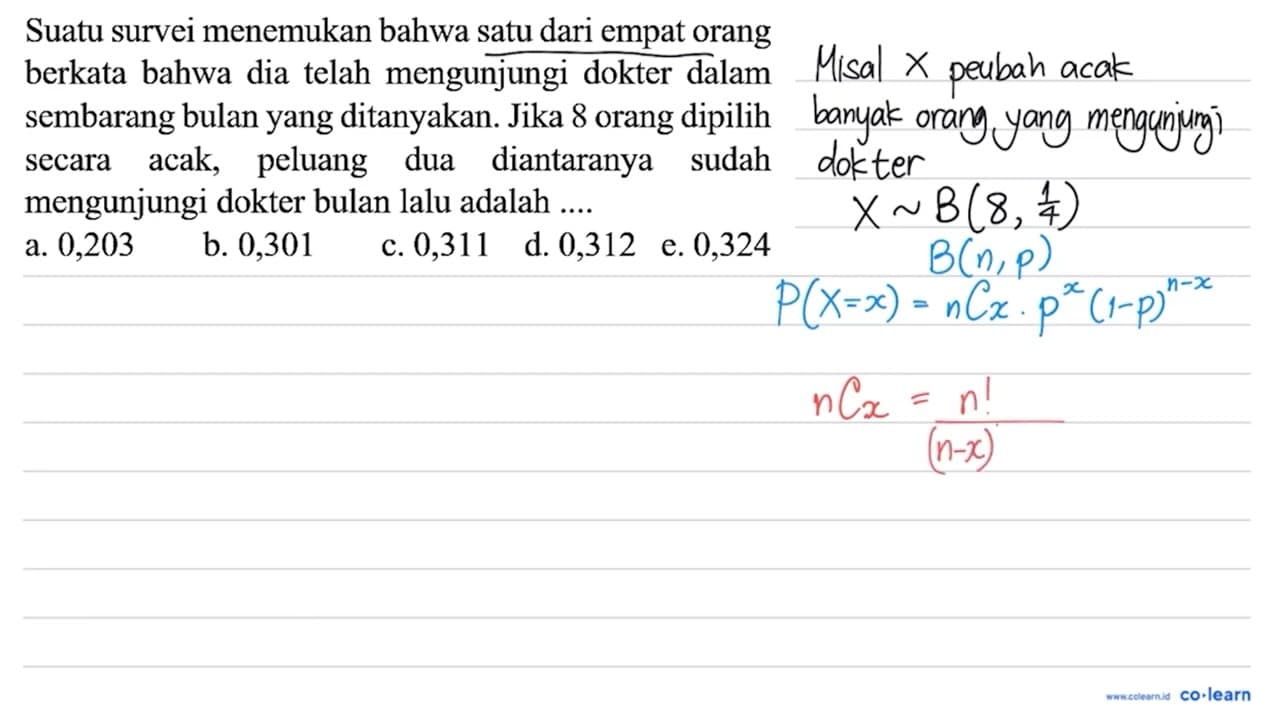 Suatu survei menemukan bahwa satu dari empat orang
berkata bahwa dia telah mengunjungi dokter dalam
sembarang bulan yang ditanyakan. Jika 8 orang dipilih
secara acak, peluang dua diantaranya sudah
mengunjungi dokter bulan lalu adalah ....
a. 0,203 b. 0,301 c. 0,311 d. 0,312 e. 0,324
Misal X peubah acak
banyak orang yang mengunjungi
dokter
X ~ B(8, 1/4)
B(n, p)
P(X=x) = nCx . p^x (1-p)^n-x
nCx = n!
(n-x)
www.colearn.id co·learn